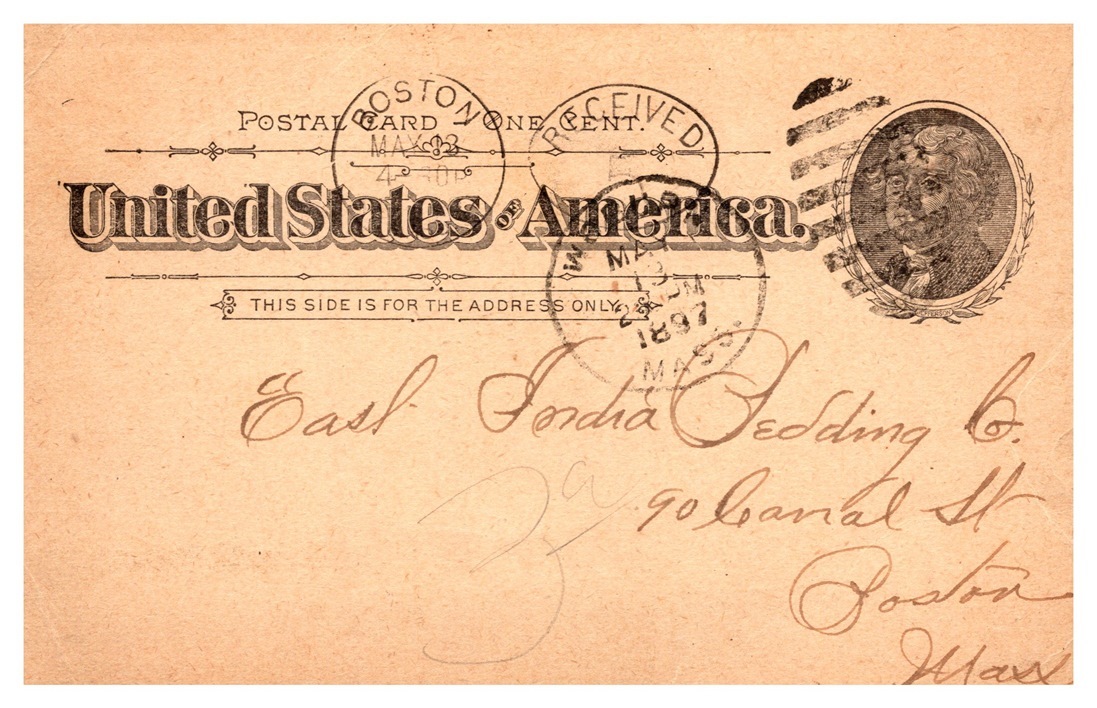 POSTAL CARD – ONE CENT.
United States OF America.
THIS SIDE IS FOR THE ADDRESS ONLY.
BOSTON
MAY 13
RECEIVED
5
MAY
12
2 PM
1897
MASS.
JEFFERSON
East India Bedding Co.
90 Canal St
Boston
Mass
3a